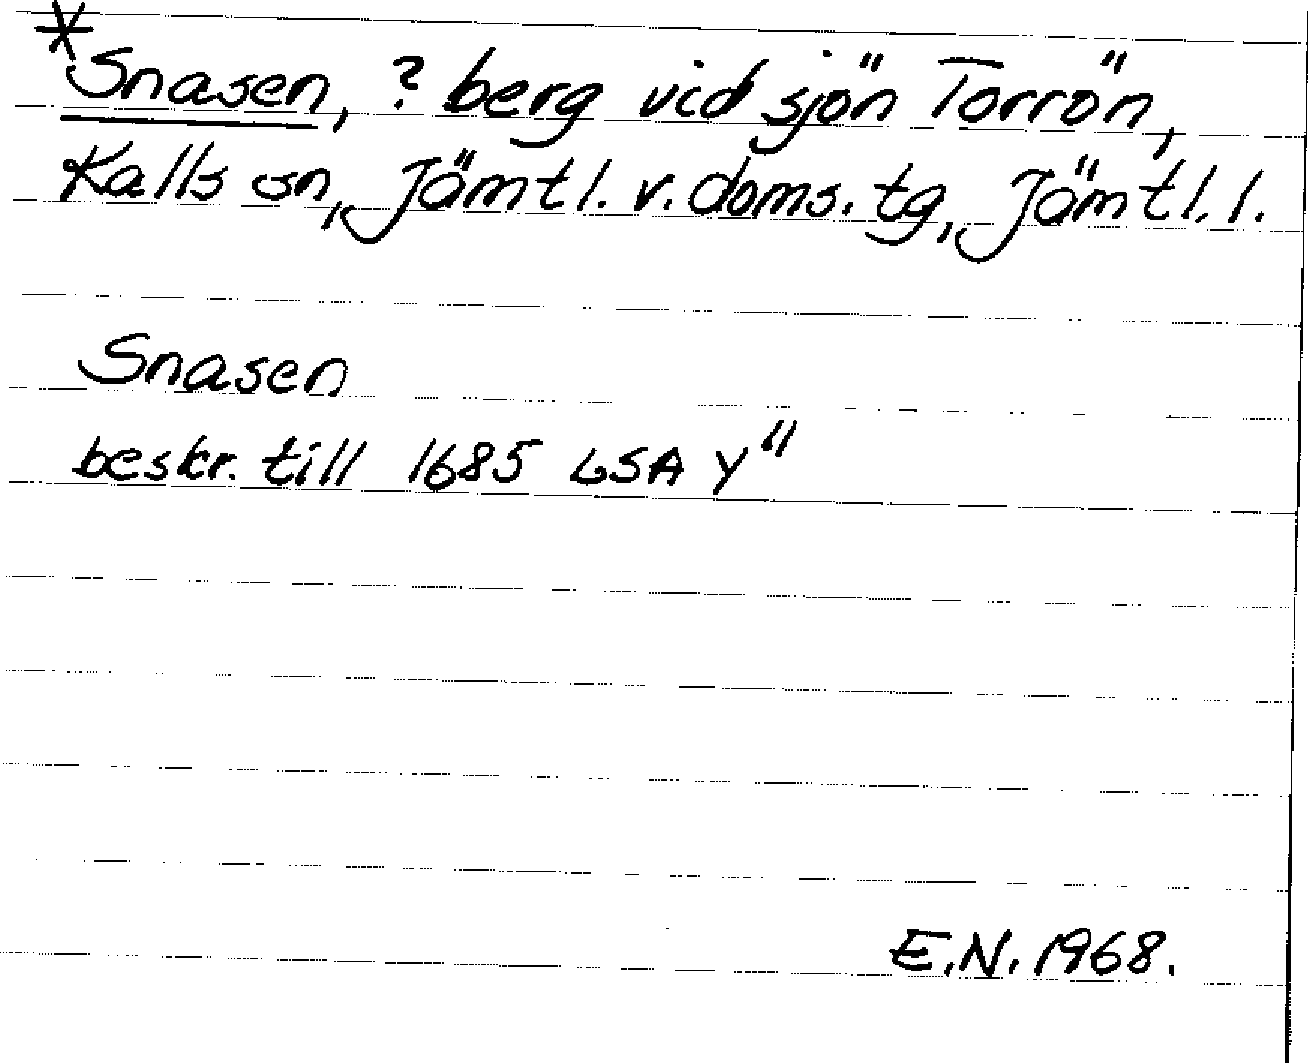 *Snasen, ? berg vid sjön Torrön,
Kalls sn, Jämtl. v. doms. tg, Jämtl. l.
Snasen
beskr. till 1685 LSA Y"
E.N. 1968.